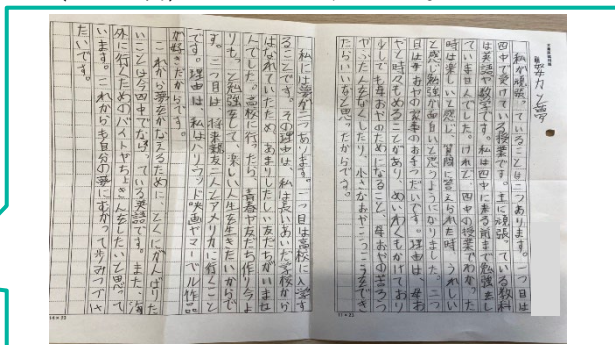 努力と夢
私が頑張っていることは二つあります。一つ目は
四中で受けている授業です。主に頑張っている教科
は英語や数学です。私は四中に来る前まで勉強をし
ていませんでした。けれど、四中の授業でわかった
時は楽しいと感じ、質問に答えられた時、うれしい
と感じ勉強が面白いと思うようになりました。二つ
目は母おやの家事のお手つだいです。理由は、母お
やと時々もめることがあり、めいわくもかけており
少しでも母おやのためになること、母おやの苦ろう
やふたんをなくしたり、小さなおやこうこうをでき
たらいいなと思ったからです。
私には夢が二つあります。一つ目は高校に入学す
ることです。その理由は、私は長いあいだ学校から
はなれていたため、あまりしたしい友だちがいませ
んでした。高校に行ったら、青春や友だち作り、今よ
りもっと勉強をして、楽しい人生を生きたいからで
す。二つ目は、将来親友二人とアメリカに行くこと
です。理由は、私はハリウッド映画やマーベル作品
が好きだからです。
これから夢をかなえるために、とくにがんばりた
いことは今四中でならっている英語です。また、海
外に行くためのバイトやちょきんをしたいと思って
います。これからも自分の夢にむかって歩みつづけ
たいです。